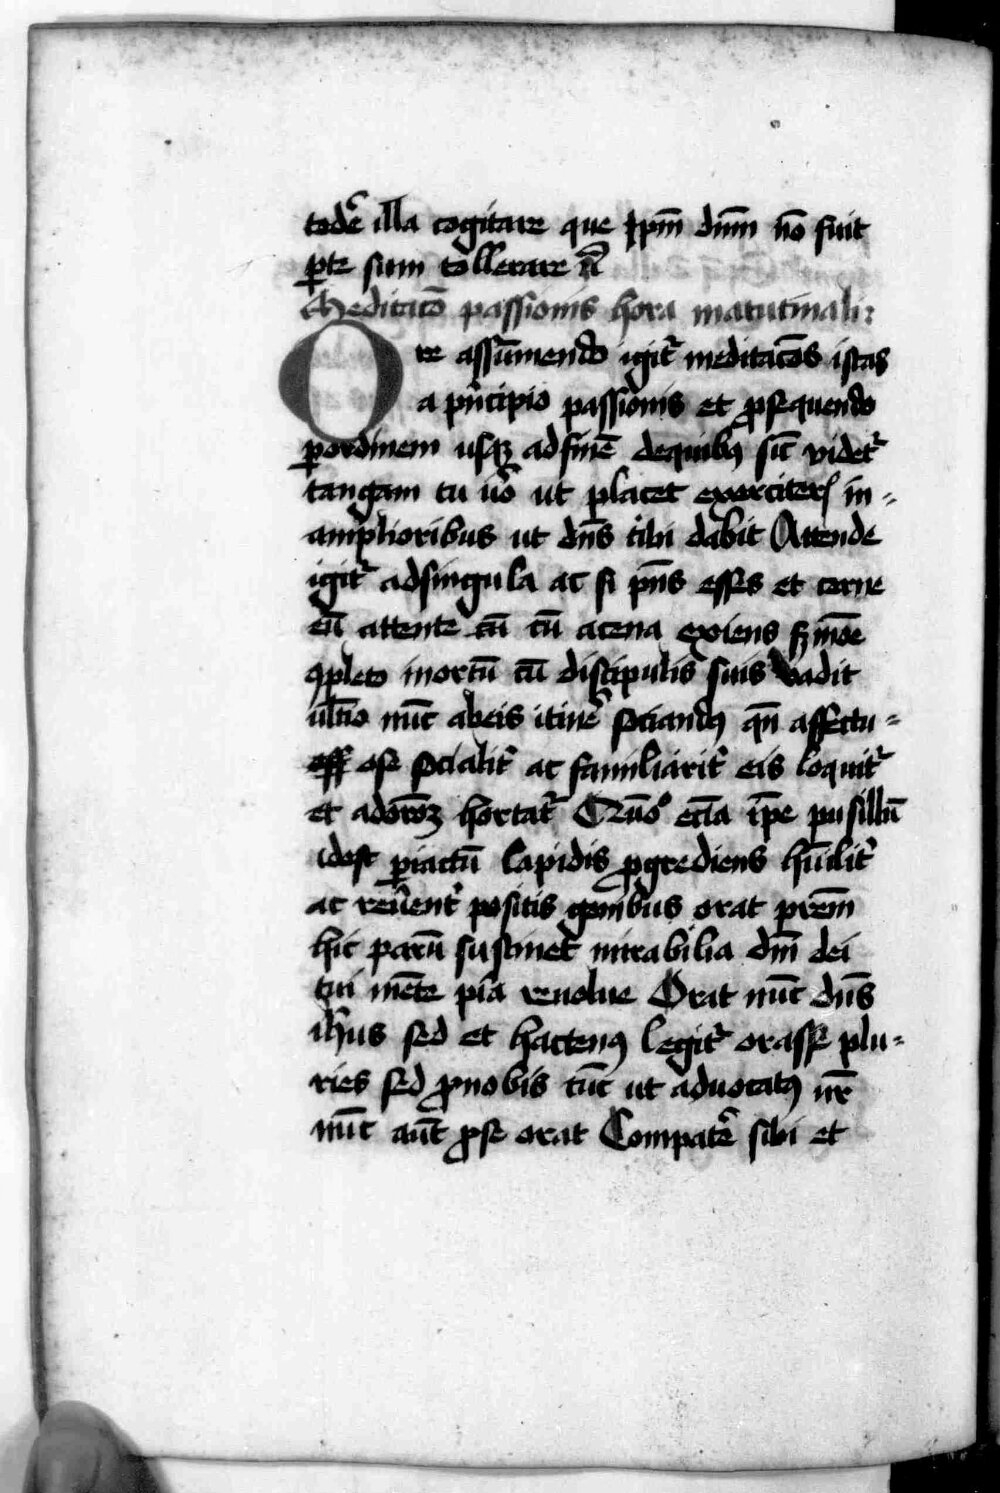 todē illa cogitare que ipm̄ dnm̄ nō fuit
ꝑte sum tollerare
Meditacō passionis hora matutinali:
Ore assūmendo igit᷑ meditacōs istas
a pⁱncipio passionis et ꝓsequendo
ꝑordinem usqꝫ adfinē dequibꝯ sic̄ videt᷑
tangam tu uō ut placet exerciteris in-
amplioribus ut dn̄s tibi dabit Attende
igit᷑ adsingula ac si pn̄s esses et cerne
eū attente cū cū acena exiens s̄mōe
ꝯpleto inortū cū discipulis suis vadit
ultīo nūc abeis itinē sociandꝯ qn̄ affectu-
ose socialit᷑ ac familiarit᷑ eis loquit᷑
et adorōꝫ hortat᷑ etīa ip̄e pusillū
idest ꝑiactū lapidis ꝓgrediens hūilit᷑
ac reūent᷑ positis genibus orat prem̄
hic parū sustinet mirabilia dn̄i dei
tui mēte pia reuolue Orat nūc dn̄s
ih̄us sed et hactenꝯ legit᷑ orasse plu-
ries sed ꝓnobis tūc ut aduocatꝯ nr̄
nūc aūt ꝓse orat Compatē sibi et